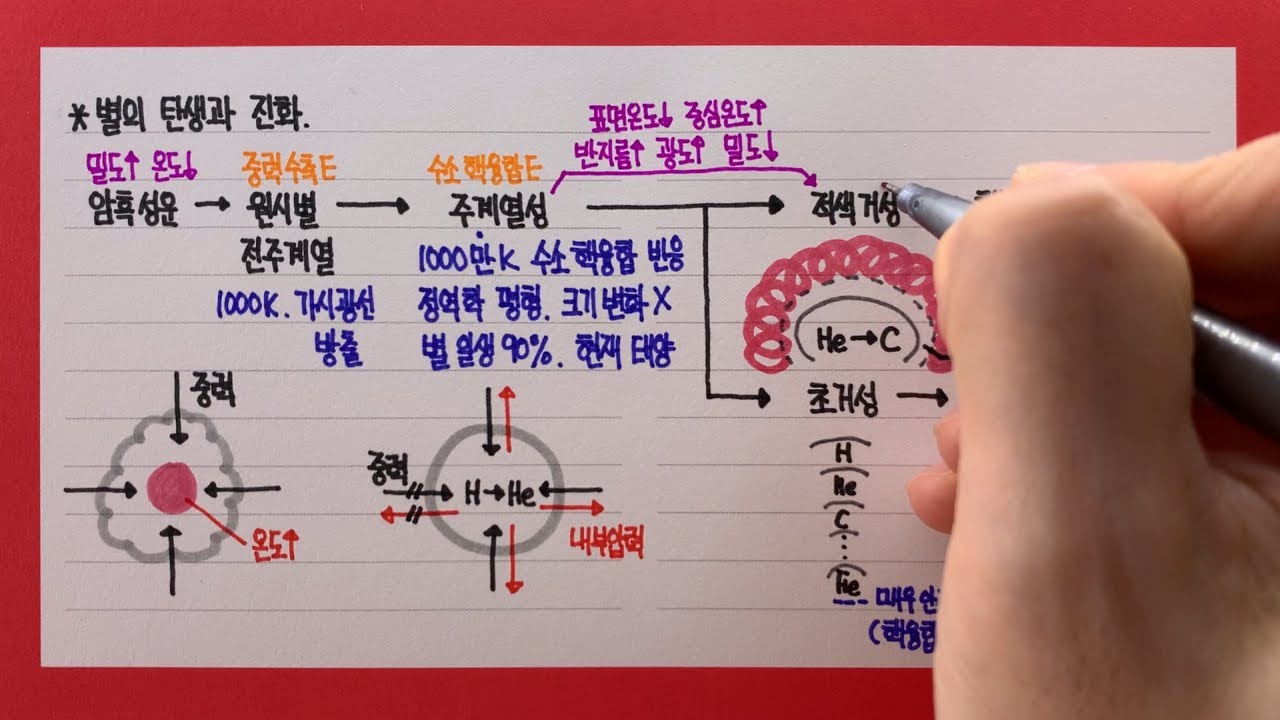 *별의 탄생과 진화.
표면온도↓ 중심온도↑
반지름↑ 광도↑ 밀도↓
밀도↑ 온도↓ 중력수축E 수소핵융합E
암흑성운 → 원시별 → 주계열성 → 적색거성
전주계열
1000만K 수소핵융합 반응
1000K. 가시광선
방출
정역학 평형. 크기변화X
별 일생 90%. 현재 태양
He→C
초거성 →
중력
온도↑
중력
H→He
내부압력
H
He
C
⋮
Fe
매우 안
(핵융합